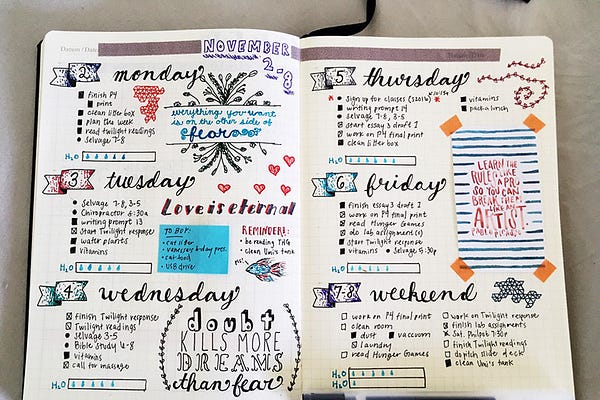 Datum / Date:
NOVEMBER
2-8
2 monday
finish P4
print
clean litter box
plan the week
read Twilight readings
Selvage 7-8
H2O
everything you want
is on the other side of
fear
3 tuesday
Selvage 7-8, 3-5
Chiropractor 6:30a
writing prompt 13
start Twilight response
water plants
vitamins
H2O
Love is eternal
TO BUY:
cat litter
cat food
USB drive
REMINDERS:
be reading THG
clean Uni's tank
4 wednesday
finish Twilight response
Twilight readings
Selvage 3-5
Bible Study 6-8
vitamins
call for massage
H2O
doubt
KILLS MORE
DREAMS
than fear
5 thursday
sign up for classes (S2016)
writing prompt 14
selvage 7-8, 3-5
start essay 3 draft 1
work on P4 final print
clean litter box
vitamins
pack a lunch
H2O
LEARN THE
RULES LIKE
A PRO,
SO YOU CAN
BREAK THEM
LIKE AN
ARTIST
PABLO PICASSO
6 friday
finish essay 3 draft 1
work on P4 final print
read Hunger Games
do lab assignment(s)
start Twilight response
vitamins
Selvage 5:30p
H2O
7-8 weekend
work on P4 final print
clean room
dust
vacuum
laundry
read Hunger Games
work on Twilight response
finish lab assignments
Sat. Philpot 7:30p
finish Twilight readings
do pitch slide deck
clean Uni's tank
H2O
H2O